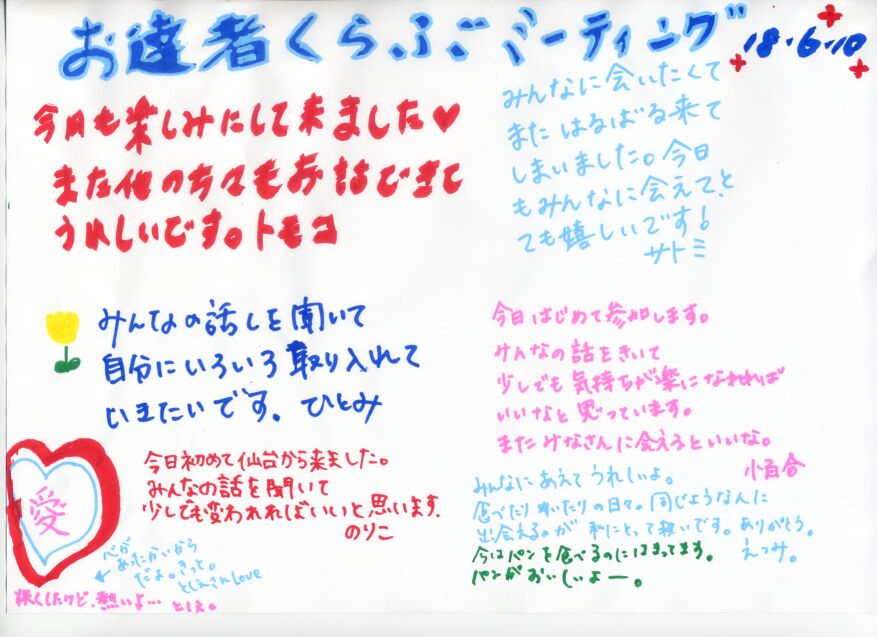 お達者くらぶミーティング
18・6・10
今月も楽しみにして来ました♥
また他の方々もお話できて
うれしいです。トモコ
みんなに会いたくて
また はるばる来て
しまいました。今日
もみんなに会えて、と
ても嬉しいです!
サトミ
みんなの話しを聞いて
自分にいろいろ取り入れて
いきたいです。ひとみ
今日はじめて参加します。
みんなの話をきいて
少しでも気持ちが楽になれれば
いいなと思っています。
またみなさんに会えるといいな。
小百合
愛
今日初めて仙台から来ました。
みんなの話を聞いて
少しでも変われればいいと思います.
のりこ
みんなにあえてうれしいよ。
食べたり 吐いたりの日々。同じような人に
出会えるのが 私にとって救いです。ありがとう。
えつみ。
今はパンを食べるのにはまってます。
パンがおいしいよー。
心が
あったかいから
だよ。きっと。
としえさんLove
したけど、熱いよ…
としえ。